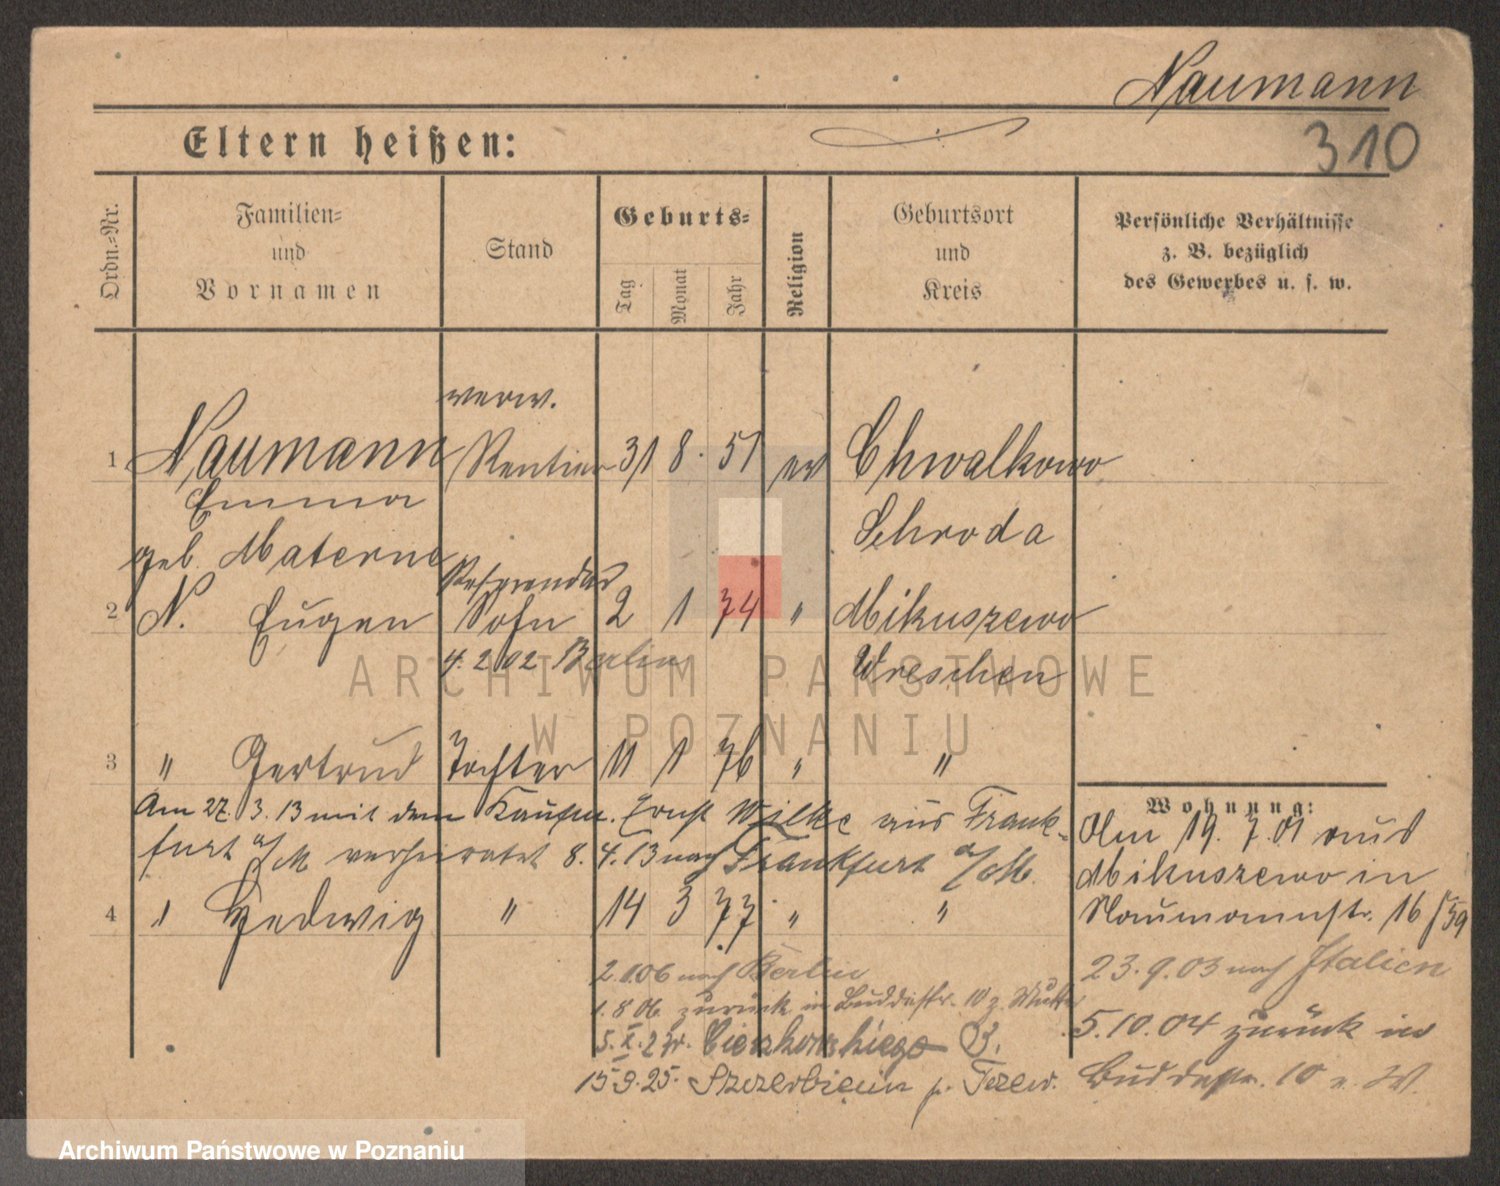 Naumann
310
Eltern heißen:
Ordn.-Nr.
Familien- und Vornamen
Stand
Geburts-
Tag
Monat
Jahr
Religion
Geburtsort und Kreis
Persönliche Verhältnisse z. B. bezüglich des Gewerbes u. s. w.
verw.
1 Naumann Rentier 31 8. 51 ev Chwalkowo
Emma Schroda
geb. Materne
Referendar
2 N. Eugen Sohn 2 1 74 " Mikuszewo
4. 2 02 Berlin Wreschen
3 " Gertrud Tochter 11 1 76 " "
Am 27. 3. 13 mit dem Kaufm. Ernst Wilke aus Frank-
furt a/M verheiratet 8. 4. 13 nach Frankfurt a/M.
4 " Hedwig " 14 3 77 " "
2. 1 06 nach Berlin
1. 8 06 zurück in Buddestr. 10 z. Mutter
5. X. 2
15 9. 25. p. Tczew.
Wohnung:
Am 19. 7. 01 aus
Mikuszewo in
Naumannstr. 16
23. 9. 03 nach Italien
5. 10. 04 zurück in
Buddestr. 10
ARCHIWUM PAŃSTWOWE
W POZNANIU
Archiwum Państwowe w Poznaniu